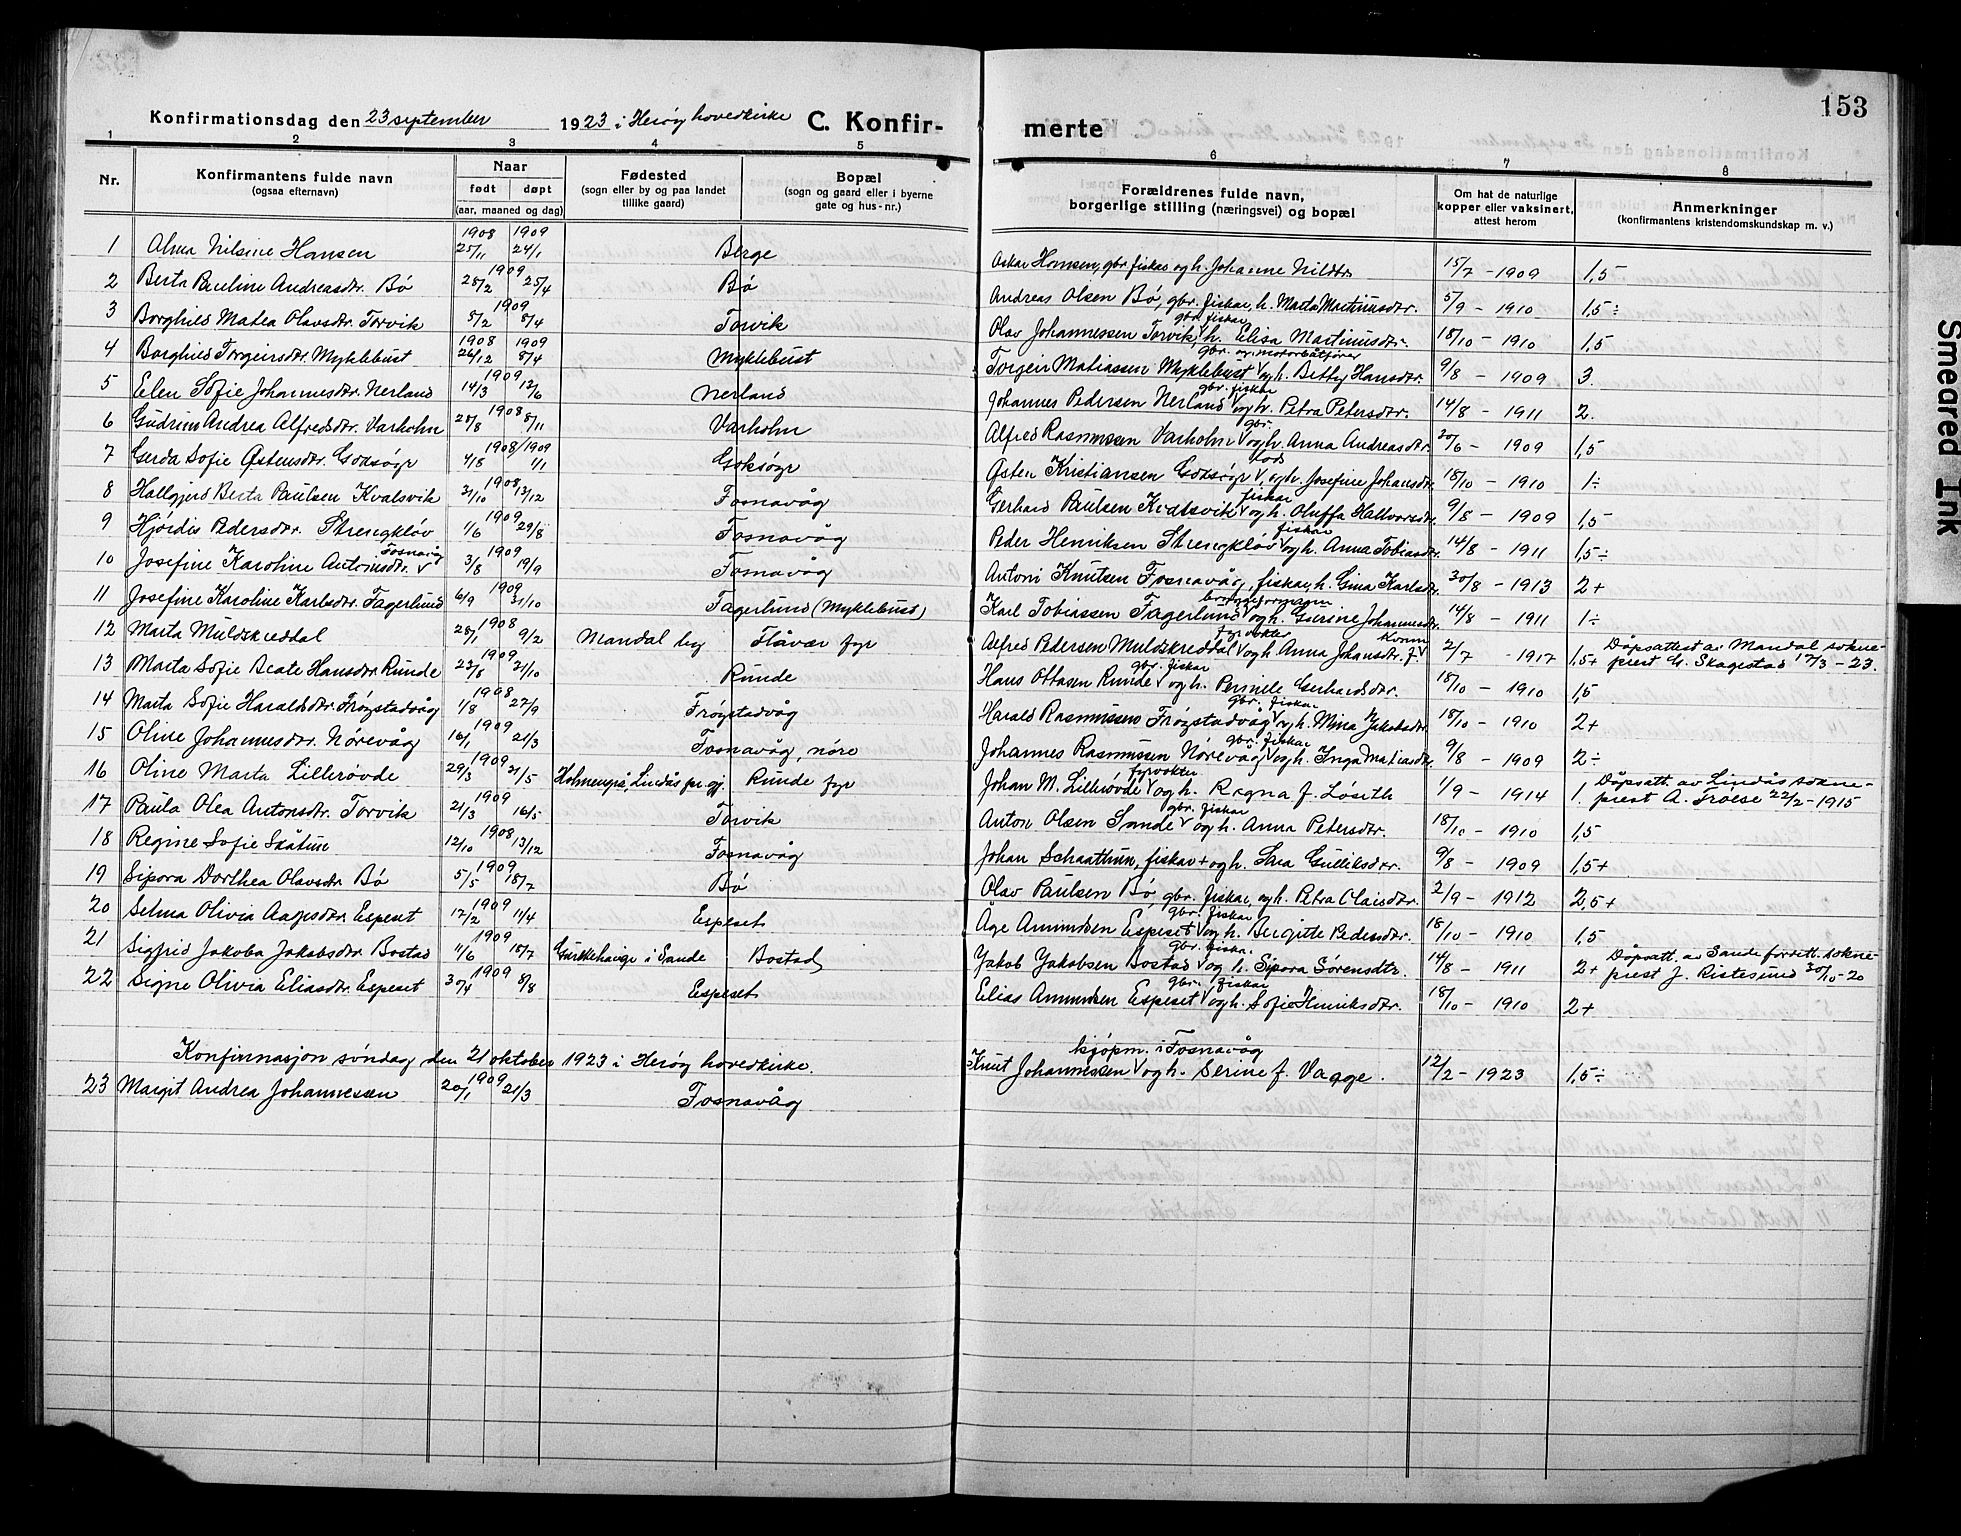 153
Konfirmationsdag den 23 september 1923 i Herøy hovedkirke C. Konfir-merte
1 2 3 4 5 6 7 8
Nr. Konfirmantens fulde navn (ogsaa efternavn) Naar født døpt (aar, maaned og dag) Fødested (sogn eller by og paa landet tillike gaard) Bopæl (sogn og gaard eller i byerne gate og hus-nr.) Forældrenes fulde navn, borgerlige stilling (næringsvei) og bopæl Om hat de naturlige kopper eller vaksinert, attest herom Anmerkninger (konfirmantens kristendomskundskap m. v.)
1 Alma Nilsine Hansen 1908 25/11 1909 24/1 Berge Oskar Hansen, gbr. fiskar og h. Johanne Nilsdtr 15/7 - 1909 1,5
2 Berta Pauline Andreasdtr. Bø 1909 28/2 25/4 Bø Andreas Olsen Bø, gbr. fiskar, h. Marta Martinusdtr. 5/9 - 1910 1,5÷
3 Borghild Matea Olavsdtr. Torvik 1909 5/2 8/4 Torvik Olav Johannessen Torvik, gbr. fiskar h. Elisa Martinusdtr. 18/10 - 1910 1,5
4 Borghild Torgeirsdtr. Myklebust 1908 26/12 1909 8/4 Myklebust Torgeir Matiassen Myklebust gbr. og motorbåtfører og h. Betty Hansdtr. 9/8 - 1909 3.
5 Elen Sofie Johannesdtr. Nerland 1909 14/3 13/6 Nerland Johannes Pedersen Nerland gbr. fiskar og h. Petra Petersdtr. 14/8 - 1911 2.
6 Gudrun Andrea Alfredsdtr. Varholm 1908 27/8 8/11 Varholm Alfred Rasmussen Varholm gbr. og h. Anna Andreasdtr. 20/6 - 1909 1,5
7 Gerda Sofie Østensdtr. Goksøyr 1908/1909 4/8 1/1 Goksøyr Østen Kristiansen Goksøyr lods og h. Josefine Johansdtr. 18/10 - 1910 1÷
8 Hallgjerd Berta Paulsen Kvalsvik 1908 31/10 13/12 Fosnavåg Gerhard Paulsen Kvalsvik fiskar og h. Oluffa Hallvarsdtr. 9/8 - 1909 1,5
9 Hjørdis Pedersdtr. Strengkløv 1909 1/6 29/8 Fosnavåg Peder Henriksen Strengkløv fiskar og h. Anna Tobiasdtr. 14/8 - 1911 1,5÷
10 Josefine Karoline Antonsdtr. Fosnavåg 1909 3/8 19/9 Fosnavåg Antoni Knutsen Fosnavåg, fiskar, h. Gina Karlsdtr. 30/8 - 1913 2+
11 Josefine Karoline Karlsdtr. Fagerlund 1909 6/9 31/10 Fagerlund (Myklebust) Karl Tobiassen Fagerlund og h. Gurine Johannesdtr. 14/8 - 1911 1÷
12 Marta Muldskreddal 1908 28/1 9/2 Mandal by Flåvær fyr Alfred Pedersen Muldskreddal fyrvokter og h. Anna Johansdtr. f. 2/7 - 1917 1,5+ Dåpsattest av Mandal sokneprest G. Skagestad 17/3 - 23.
13 Marta Sofie Beate Hansdtr. Runde 1909 23/8 21/10 Runde Hans Ottasen Runde gbr. fiskar og h. Pernele Gerhardsdtr. 18/10 - 1910 1,5
14 Marta Sofie Haraldsdtr. Frøystadvåg 1908 1/8 27/9 Frøystadvåg Harald Rasmussen Frøystadvåg gbr. fiskar og h. Mina Jakobsdtr. 18/10 - 1910 2+
15 Oline Johannesdtr. Nørevåg 1909 16/1 21/3 Fosnavåg, nøre Johannes Rasmussen Nørevåg gbr. fiskar og h. Inga Matiasdtr. 9/8 - 1909 2÷
16 Oline Marta Lillerøvde 1909 29/3 31/5 Holmengrå, Lindås pr.gj. Runde fyr Johan M. Lillerøvde fyrvokter og h. Ragna f. Løseth 1/9 - 1914 1. Dåpsatt. av Lindås sokneprest A. Troese 22/2 - 1915
17 Paula Olea Antonsdtr. Torvik 1909 21/3 16/5 Torvik Anton Olsen Sande gbr. fiskar og h. Anna Petersdtr. 18/10 - 1910 1,5
18 Regine Sofie Skåtun 1908 12/10 13/12 Fosnavåg Johan Schaathun, fiskar og h. Sara Gulliksdtr 9/8 - 1909 1,5+
19 Sipora Dorthea Olavsdtr. Bø 1909 5/5 18/7 Bø Olav Paulsen Bø, gbr. fiskar, og h. Petra Olaisdtr. 2/9 - 1912 2,5+
20 Selma Olivia Aagesdtr. Espeset 1909 17/2 11/4 Espeset Åge Amundsen Espeset gbr. fiskar og h. Bergitte Pedersdtr. 18/10 - 1910 1,5
21 Sigfrid Jakoba Jakobsdtr. Bostad 1909 11/6 18/7 Gurskehaugs i Sande Bostad Jakob Jakobsen Bostad gbr. fiskar og h. Sipora Sørensdtr. 14/8 - 1911 2+ Dåpsatt. av Sande forrett. sokneprest J. Ristesund 30/10-20
22 Signe Olivia Eliasdtr. Espeset 1909 30/4 8/8 Espeset Elias Amundsen Espeset gbr. fiskar og h. Sofie Henriksdtr. 18/10 - 1910 2+
Konfirmasjon søndag den 21 oktober 1923 i Herøy hovedkirke.
23 Margit Andrea Johannessen 1909 20/1 21/3 Fosnavåg Knut Johannessen kjøpm. i Fosnavåg og h. Serine f. Vagge. 12/2 - 1923 1,5÷
Smeared Ink